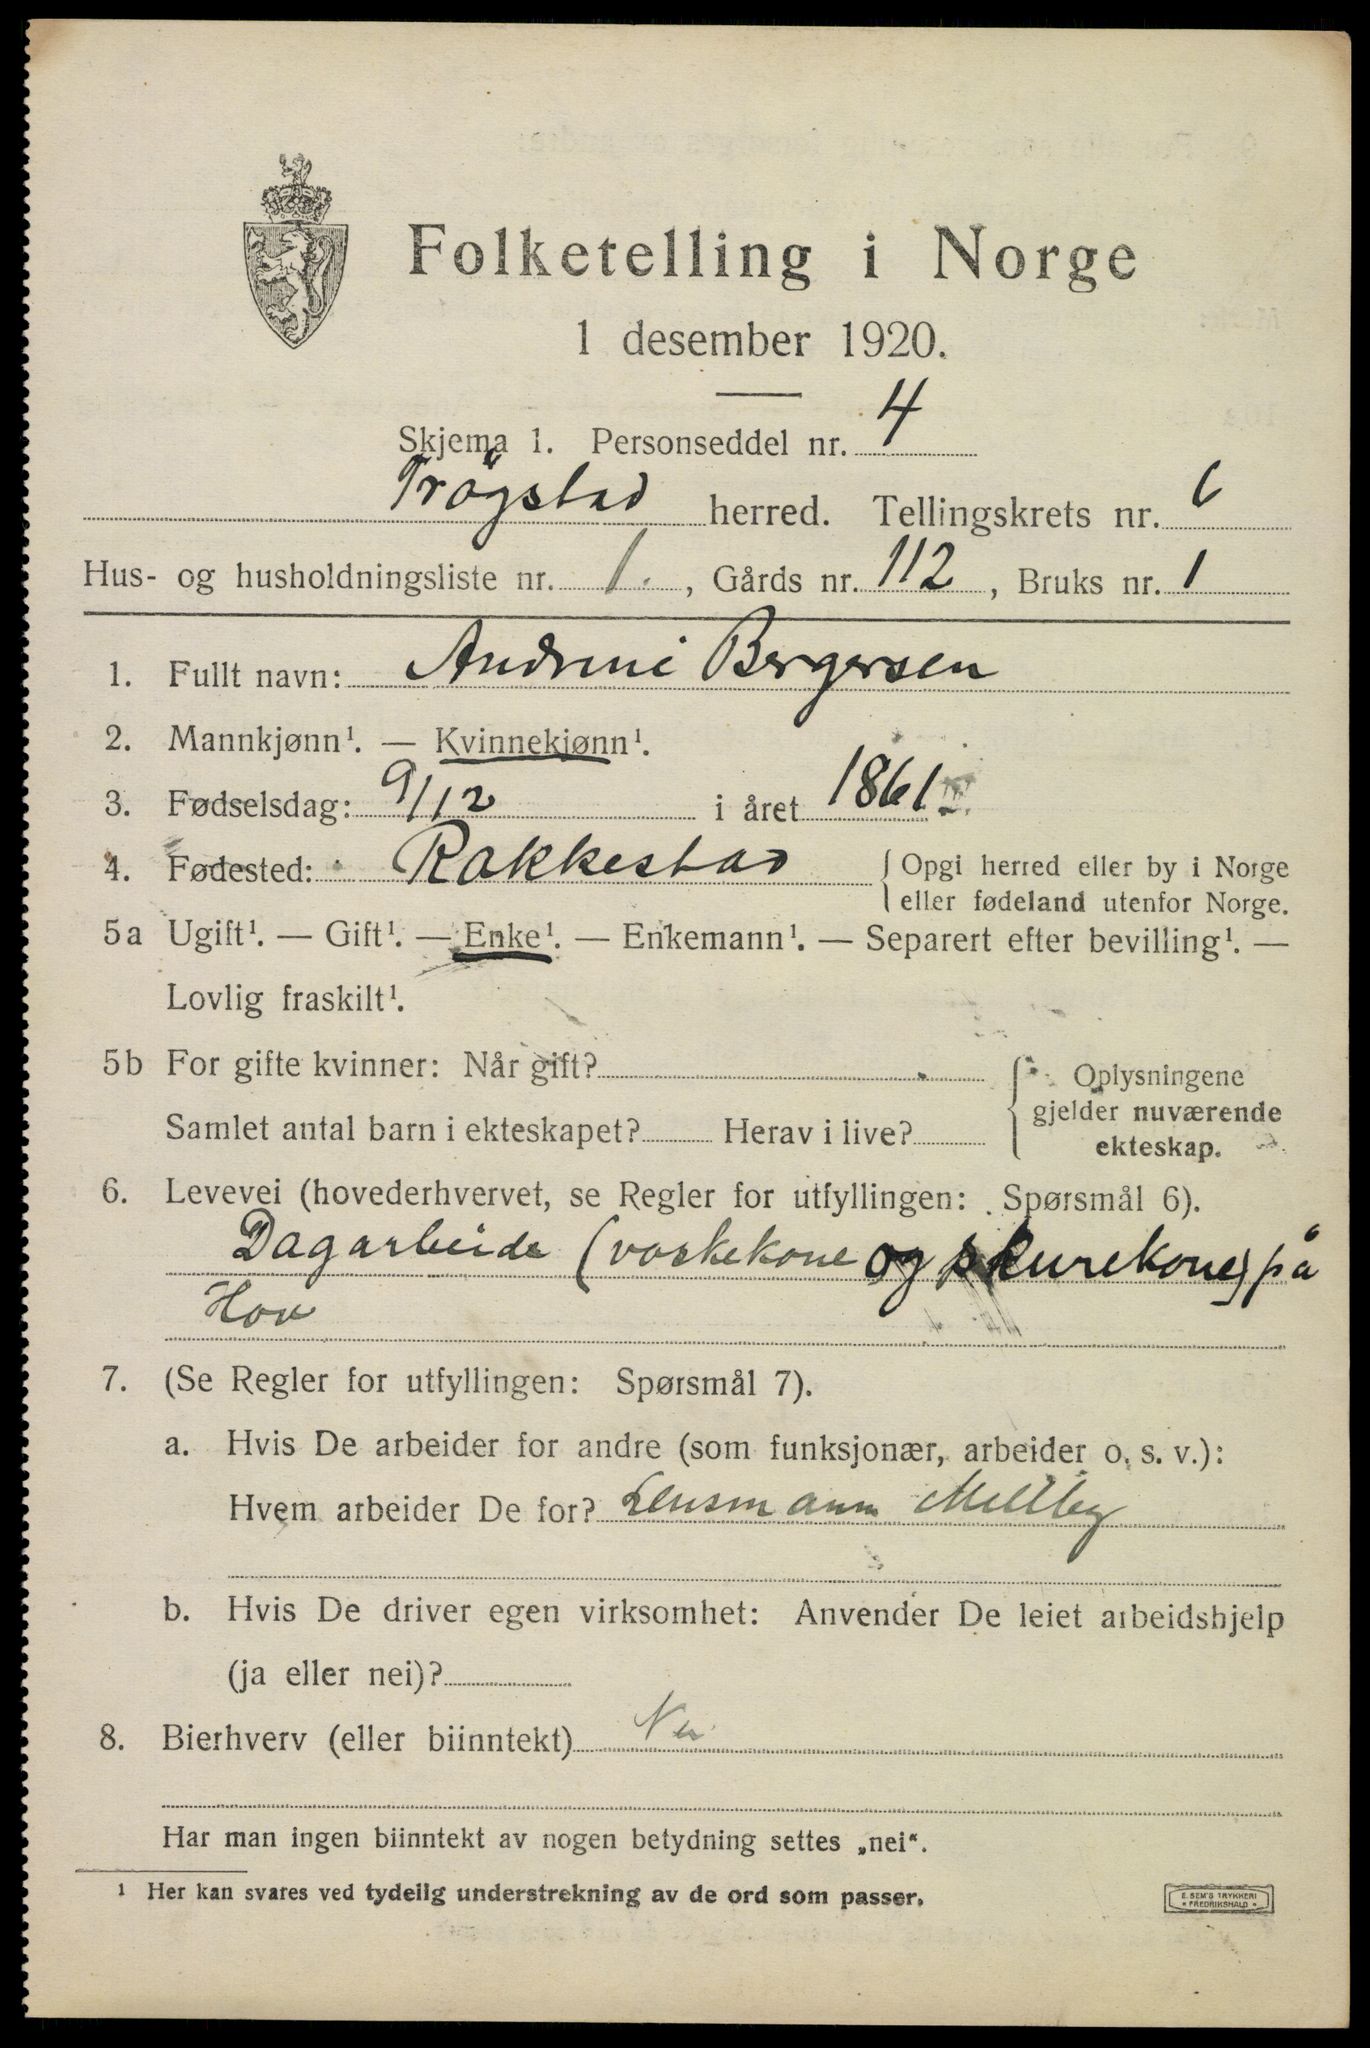 Folketelling i Norge
1 desember 1920.
Skjema 1. Personseddel nr. 4
Trøgstad herred. Tellingskrets nr. 6
Hus- og husholdningsliste nr. 1. , Gårds nr. 112 , Bruks nr. 1
1. Fullt navn: Andrine Bergersen
2. Mannkjønn¹. — Kvinnekjønn¹.
3. Fødselsdag: 9/12 i året 1861
4. Fødested: Rakkestad { Opgi herred eller by i Norge
eller fødeland utenfor Norge.
5a Ugift¹. — Gift¹. — Enke¹. — Enkemann¹. — Separert efter bevilling¹. —
Lovlig fraskilt¹.
5b For gifte kvinner: Når gift? { Oplysningene
gjelder nuværende
Samlet antal barn i ekteskapet? Herav i live? ekteskap.
6. Levevei (hovederhvervet, se Regler for utfyllingen: Spørsmål 6).
Dagarbeide (vaskekone og skurekone) på
Hov
7. (Se Regler for utfyllingen: Spørsmål 7).
a. Hvis De arbeider for andre (som funksjonær, arbeider o. s. v.):
Hvem arbeider De for? Lensmann Mellby
b. Hvis De driver egen virksomhet: Anvender De leiet arbeidshjelp
(ja eller nei)?
8. Bierhverv (eller biinntekt) Nei
Har man ingen biinntekt av nogen betydning settes „nei“.
¹ Her kan svares ved tydelig understrekning av de ord som passer.
E. SEM'S TRYKKERI
* FREDRIKSHALD *